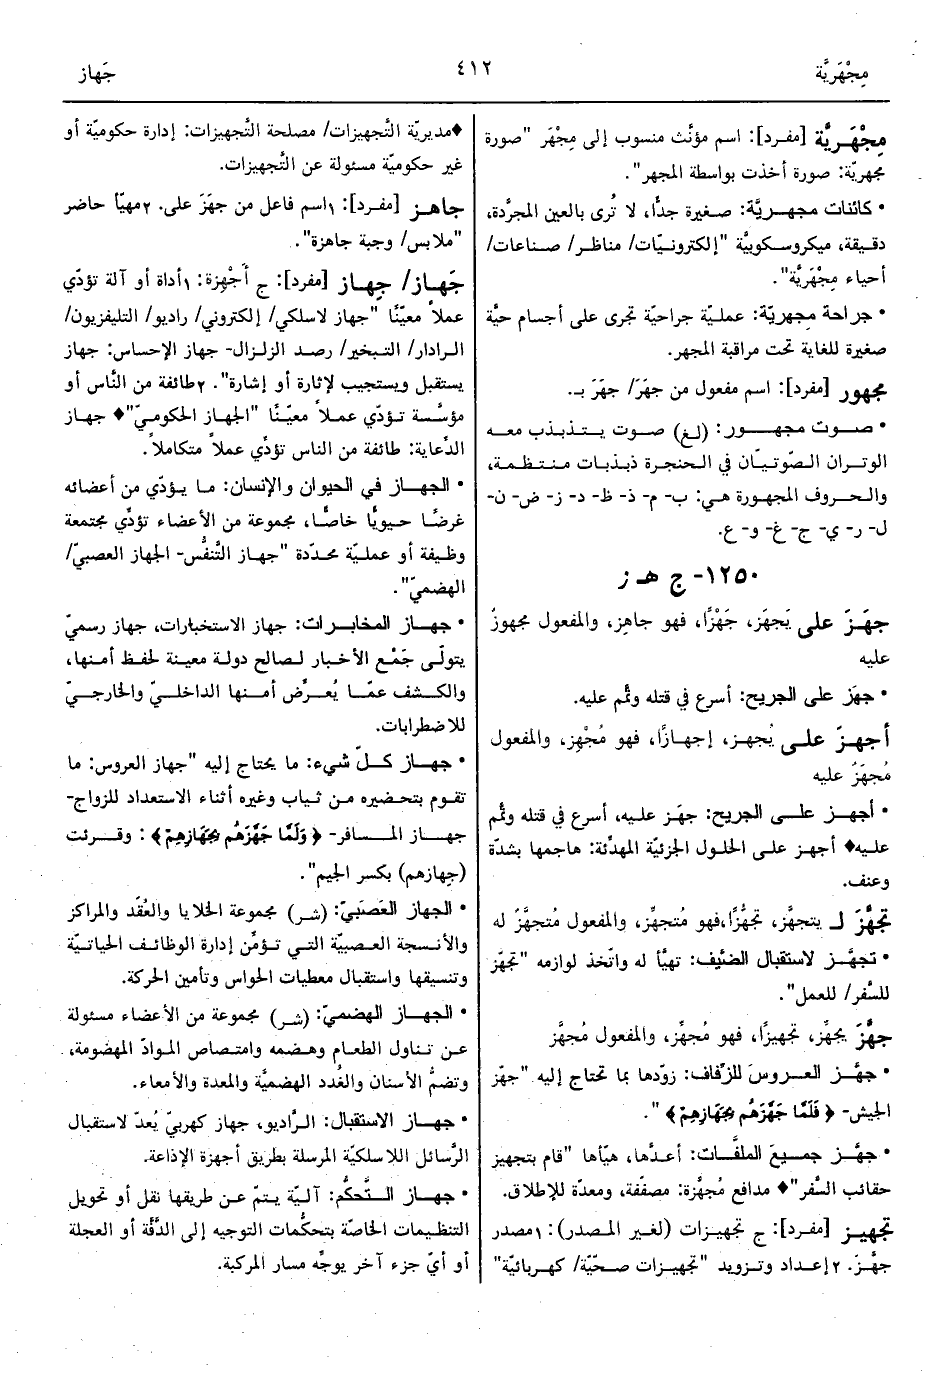 مِجْهَرِيَّة
٤١٢
جَهاز
مِجْهَـرِيَّة [مفـرد]: اسم مؤنَّث منسوب إلى مِجْهَر "صورة
مجهريّة: صورة أخذت بواسطة المجهر".
• كائنات مجهـريَّة: صغيرة جدًّا، لا تُرى بالعين المجرَّدة،
دقيقة، ميكروسكوبيَّة "إلكترونيّات/ مناظر/ صناعات/
أحياء مِجْهَرِيَّة".
• جراحة مجهريّة: عمليّة جراحيّة تجرى على أجسام حيَّة
صغيرة للغاية تحت مراقبة المجهر.
مجهور [مفرد]: اسم مفعول من جهَرَ/ جهَرَ بـ.
• صـوت مجهـور: (لغ) صـوت يـتذبذب معـه
الوتران الصّوتيّان في الحنجرة ذبذبات منتظمة،
والحـروف المجهورة هـي: ب- م- ذ- ظ- د- ز- ض- ن-
ل- ر- ي- ج- غ- و- ع.
١٢٥٠- ج هـ ز
جهَـزَ على يَجهَز، جَهْزًا، فهو جاهِز، والمفعول مجهوزٌ
عليه
• جهَز على الجريح: أسرع في قتله وتمّم عليه.
أجهـزَ علـى يُجهـز، إجهـازًا، فهو مُجْهِز، والمفعول
مُجهَزٌ عليه
• أجهـز علـى الجريح: جهَز عليه، أسرع في قتله وتمّم
عليـه♦ أجهز على الحلول الجزئيّة المهدّئة: هاجمها بشدّة
وعنف.
تجهَّزَ لـ يتجهَّز، تجهُّزًا،فهو مُتجهِّز، والمفعول مُتجهَّزٌ له
• تجهَّـز لاستقبال الضَّيف: تهيَّأ له واتّخذ لوازمه "تجهّز
للسَّفر/ للعمل".
جهَّزَ يجهِّز، تجهيزًا، فهو مُجهِّز، والمفعول مُجهَّز
• جهَّـز العـروسَ للزّفاف: زوّدها بما تحتاج إليه "جهّز
الجيش- ﴿ فَلَمَّا جَهَّزَهُم بِجَهَازِهِمْ ﴾ ".
• جهَّـز جمـيعَ الملفَّـات: أعـدَّها، هيّأها "قام بتجهيز
حقائب السَّفر"♦ مدافع مُجهَّزة: مصفّفة، ومعدّة للإطلاق.
تجهيـز [مفـرد]: ج تجهيـزات (لغـير المـصدر): ١مصدر
جهَّـزَ. ٢إعـداد وتـزويد "تجهيزات صحّيّة/ كهربائيّة"
♦مديريّة التَّجهيزات/ مصلحة التَّجهيزات: إدارة حكوميّة أو
غير حكوميّة مسئولة عن التَّجهيزات.
جاهـز [مفرد]: ١اسم فاعل من جهَزَ على. ٢مهيّأ حاضر
"ملابس/ وجبة جاهزة".
جَهـاز/ جِهـاز [مفرد]: ج أَجْهِزة: ١أداة أو آلة تؤدّي
عملاً معيّنًا "جهاز لاسلكي/ إلكتروني/ راديو/ التليفزيون/
الـرادار/ التبخير/ رصـد الزلزال- جهاز الإحساس: جهاز
يستقبل ويستجيب لإثارة أو إشارة". ٢طائفة من النَّاس أو
مؤسَّسة تـؤدّي عمـلاً معيّـنًا "الجهاز الحكوميّ"♦ جهاز
الدّعاية: طائفة من الناس تؤدّي عملاً متكاملاً.
• الجهـاز في الحيوان والإنسان: مـا يـؤدّي من أعضائه
غرضًـا حـيويًّا خاصًّـا، مجموعة من الأعضاء تؤدّي مجتمعة
وظيفة أو عملـيّة محـدّدة "جهـاز التَّنفُّس- الجهاز العصبيّ/
الهضميّ".
• جهـاز المخابـرات: جهاز الاستخبارات، جهاز رسميّ
يتولّـى جَمْع الأخبار لـصالح دولـة معينة لحفظ أمـنها،
والكـشف عمّـا يُعـرِّض أمـنها الداخلـيّ والخارجـيّ
للاضطرابات.
• جهـاز كـلّ شيء: ما يحتاج إليه "جهاز العروس: ما
تقـوم بتحضيره مـن ثـياب وغيره أثناء الاستعداد للزواج-
جهـاز المـسافر- ﴿ وَلَمَّا جَهَّزَهُم بِجَهَازِهِمْ ﴾ : وقـرئت
(جِهازهم) بكسر الجيم".
• الجهاز العَصَبيّ: (شـر) مجموعة الخلايا والعُقَد والمراكز
والأنسجة العصبية التـي تـؤمِّن إدارة الوظائـف الحياتيّة
وتنسيقها واستقبال معطيات الحواس وتأمين الحركة.
• الجهـاز الهضميّ: (شـر) مجموعة من الأعضاء مسئولة
عـن تـناول الطعام وهـضمه وامتصاص المـوادّ المهضومة،
وتضمُّ الأسنان والغُدد الهضميَّة والمعدة والأمعاء.
• جهـاز الاستقبال: الـرَّاديو، جهاز كهربيّ يُعدّ لاستقبال
الرَّسائل اللاسلكيّة المرسلة بطريق أجهزة الإذاعة.
• جهـاز الـتَّحكُّم: آلـيّة يـتمّ عـن طريقها نقل أو تحويل
التنظيمات الخاصّة بتحكُّمات التوجيه إلى الدَّفَّة أو العجلة
أو أيّ جزء آخر يوجّه مسار المركبة.